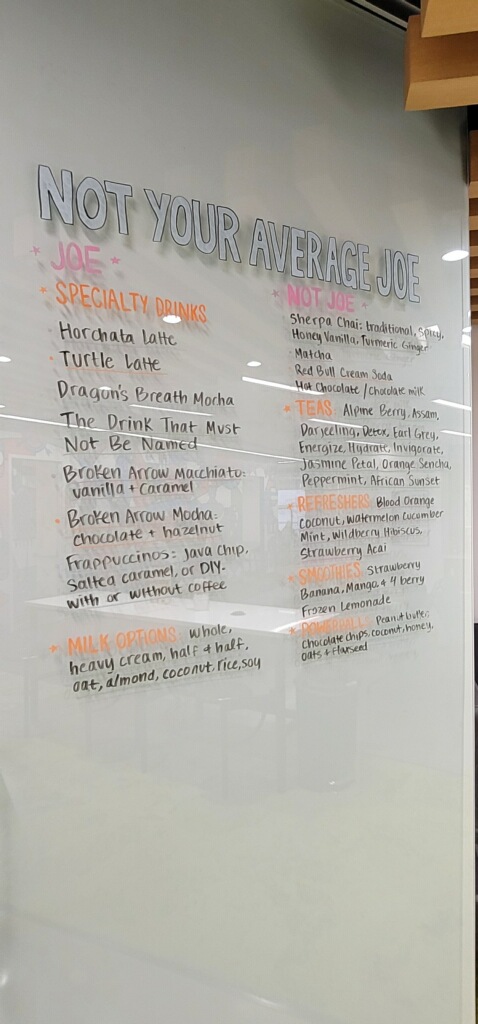 NOT YOUR AVERAGE JOE
JOE
SPECIALTY DRINKS
Horchata Latte
Turtle Latte
Dragon's Breath Mocha
The Drink That Must
Not Be Named
Broken Arrow Macchiato:
vanilla + caramel
Broken Arrow Mocha:
chocolate + hazelnut
Frappuccinos: Java Chip,
Salted caramel, or DIY-
with or without coffee
MILK OPTIONS: whole,
heavy cream, half & half,
oat, almond, coconut, rice, soy
NOT JOE
Sherpa Chai: traditional, spicy,
Honey Vanilla, Turmeric Ginger
Matcha
Red Bull Cream Soda
Hot Chocolate / Chocolate milk
TEAS: Alpine Berry, Assam,
Darjeeling, Detox, Earl Grey,
Energize, Hydrate, Invigorate,
Jasmine Petal, Orange Sencha,
Peppermint, African Sunset
REFRESHERS: Blood Orange
coconut, watermelon cucumber
Mint, Wildberry Hibiscus,
Strawberry Acai
SMOOTHIES: Strawberry
Banana, Mango, & 4 berry
Frozen Lemonade
POWERBALL: Peanut butter,
Chocolate chips, coconut, honey,
oats + flaxseed